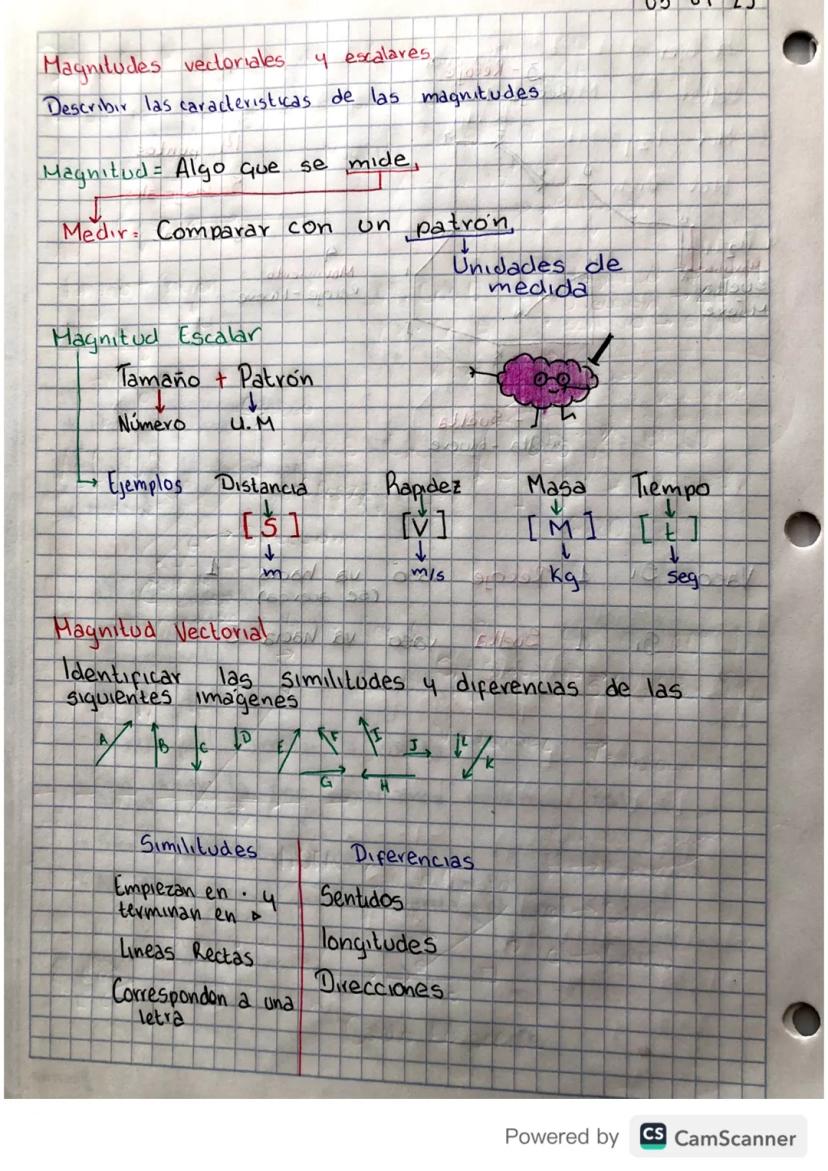 Magnitudes vectoriales y escalares
Describir las caracteristicas de las magnitudes
Magnitud = Algo que se mide
Medir = Comparar con un patrón
Unidades de
medida
Magnitud Escalar
Tamaño + Patrón
Número U.M
Ejemplos Distancia Rapidez Masa Tiempo
[S] [V] [M] [t]
m m/s Kg seg
Magnitud Vectorial
Identificar las similitudes y diferencias de las
siguientes imágenes
A B C D E F I J L K
G H
Similitudes Diferencias
Empiezan en · y Sentidos
terminan en ▷
Lineas Rectas longitudes
Correspondon a una Direcciones
letra
Powered by CS CamScanner